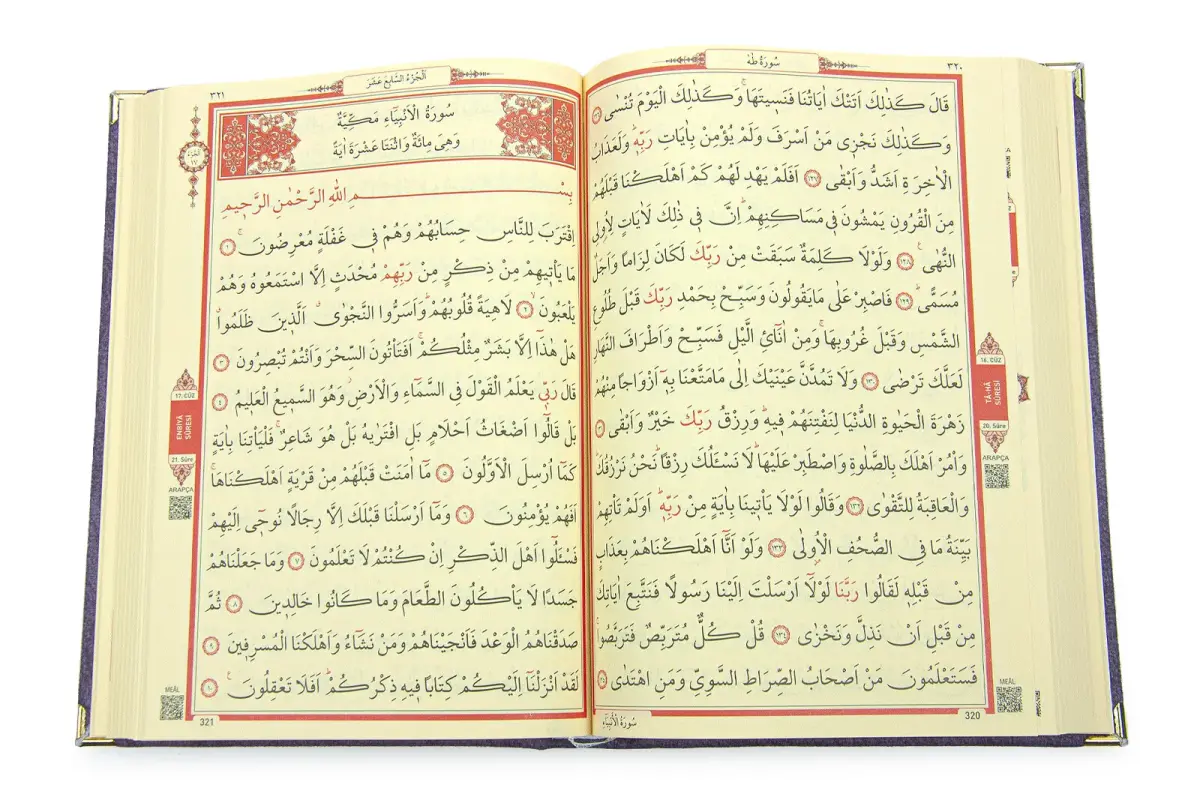 ٣٢٠
سُورَةُ طٰهٰ
قَالَ كَذٰلِكَ اَتَتْكَ اٰيَاتُنَا فَنَسٖيتَهَاۚ وَكَذٰلِكَ الْيَوْمَ تُنْسٰى ﴿١٢٦﴾
وَكَذٰلِكَ نَجْزٖى مَنْ اَسْرَفَ وَلَمْ يُؤْمِنْ بِاٰيَاتِ رَبِّهٖۜ وَلَعَذَابُ
الْاٰخِرَةِ اَشَدُّ وَاَبْقٰى ﴿١٢٧﴾ اَفَلَمْ يَهْدِ لَهُمْ كَمْ اَهْلَكْنَا قَبْلَهُمْ
مِنَ الْقُرُونِ يَمْشُونَ فٖى مَسَاكِنِهِمْۜ اِنَّ فٖى ذٰلِكَ لَاٰيَاتٍ لِاُولِى
النُّهٰىۚ ﴿١٢٨﴾ وَلَوْلَا كَلِمَةٌ سَبَقَتْ مِنْ رَبِّكَ لَكَانَ لِزَامًا وَاَجَلٌ
مُسَمًّىۜ ﴿١٢٩﴾ فَاصْبِرْ عَلٰى مَا يَقُولُونَ وَسَبِّحْ بِحَمْدِ رَبِّكَ قَبْلَ طُلُوعِ
الشَّمْسِ وَقَبْلَ غُرُوبِهَاۚ وَمِنْ اٰنَائِ الَّيْلِ فَسَبِّحْ وَاَطْرَافَ النَّهَارِ
لَعَلَّكَ تَرْضٰى ﴿١٣٠﴾ وَلَا تَمُدَّنَّ عَيْنَيْكَ اِلٰى مَا مَتَّعْنَا بِهٖٓ اَزْوَاجًا مِنْهُمْ
زَهْرَةَ الْحَيٰوةِ الدُّنْيَا لِنَفْتِنَهُمْ فٖيهِۜ وَرِزْقُ رَبِّكَ خَيْرٌ وَاَبْقٰى ﴿١٣١﴾
وَأْمُرْ اَهْلَكَ بِالصَّلٰوةِ وَاصْطَبِرْ عَلَيْهَاۜ لَا نَسْـَٔلُكَ رِزْقًاۜ نَحْنُ نَرْزُقُكَۜ
وَالْعَاقِبَةُ لِلتَّقْوٰى ﴿١٣٢﴾ وَقَالُوا لَوْلَا يَأْتٖينَا بِاٰيَةٍ مِنْ رَبِّهٖۜ اَوَلَمْ تَأْتِهِمْ
بَيِّنَةُ مَا فِى الصُّحُفِ الْاُولٰى ﴿١٣٣﴾ وَلَوْ اَنَّٓا اَهْلَكْنَاهُمْ بِعَذَابٍ
مِنْ قَبْلِهٖ لَقَالُوا رَبَّنَا لَوْلَٓا اَرْسَلْتَ اِلَيْنَا رَسُولًا فَنَتَّبِعَ اٰيَاتِكَ
مِنْ قَبْلِ اَنْ نَذِلَّ وَنَخْزٰى ﴿١٣٤﴾ قُلْ كُلٌّ مُتَرَبِّصٌ فَتَرَبَّصُواۚ
فَسَتَعْلَمُونَ مَنْ اَصْحَابُ الصِّرَاطِ السَّوِىِّ وَمَنِ اهْتَدٰى ﴿١٣٥﴾
16. CÜZ
TÂ-HÂ
SÛRESİ
20. Sûre
ARAPÇA
MEÂL
320
سُورَةُ الْاَنْبِيَاءِ
٣٢١
اَلْجُزْءُ السَّابِعُ عَشَرَ
سُورَةُ الْاَنْبِيَٓاءِ مَكِّيَّةٌ
وَهِىَ مِائَةٌ وَاثْنَتَا عَشْرَةَ اٰيَةً
بِسْمِ اللّٰهِ الرَّحْمٰنِ الرَّحٖيمِ
اِقْتَرَبَ لِلنَّاسِ حِسَابُهُمْ وَهُمْ فٖى غَفْلَةٍ مُعْرِضُونَۚ ﴿١﴾
مَا يَأْتٖيهِمْ مِنْ ذِكْرٍ مِنْ رَبِّهِمْ مُحْدَثٍ اِلَّا اسْتَمَعُوهُ وَهُمْ
يَلْعَبُونَۙ ﴿٢﴾ لَاهِيَةً قُلُوبُهُمْۜ وَاَسَرُّوا النَّجْوٰىۗ اَلَّذٖينَ ظَلَمُواۗ
هَلْ هٰذَٓا اِلَّا بَشَرٌ مِثْلُكُمْۚ اَفَتَأْتُونَ السِّحْرَ وَاَنْتُمْ تُبْصِرُونَ ﴿٣﴾
قَالَ رَبّٖى يَعْلَمُ الْقَوْلَ فِى السَّمَٓاءِ وَالْاَرْضِۘ وَهُوَ السَّمٖيعُ الْعَلٖيمُ ﴿٤﴾
بَلْ قَالُٓوا اَضْغَاثُ اَحْلَامٍ بَلِ افْتَرٰيهُ بَلْ هُوَ شَاعِرٌۚ فَلْيَأْتِنَا بِاٰيَةٍ
كَمَٓا اُرْسِلَ الْاَوَّلُونَ ﴿٥﴾ مَٓا اٰمَنَتْ قَبْلَهُمْ مِنْ قَرْيَةٍ اَهْلَكْنَاهَاۚ
اَفَهُمْ يُؤْمِنُونَ ﴿٦﴾ وَمَٓا اَرْسَلْنَا قَبْلَكَ اِلَّا رِجَالًا نُوحٖٓى اِلَيْهِمْ
فَسْـَٔلُٓوا اَهْلَ الذِّكْرِ اِنْ كُنْتُمْ لَا تَعْلَمُونَ ﴿٧﴾ وَمَا جَعَلْنَاهُمْ
جَسَدًا لَا يَأْكُلُونَ الطَّعَامَ وَمَا كَانُوا خَالِدٖينَ ﴿٨﴾ ثُمَّ
صَدَقْنَاهُمُ الْوَعْدَ فَاَنْجَيْنَاهُمْ وَمَنْ نَشَٓاءُ وَاَهْلَكْنَا الْمُسْرِفٖينَ ﴿٩﴾
لَقَدْ اَنْزَلْنَٓا اِلَيْكُمْ كِتَابًا فٖيهِ ذِكْرُكُمْۜ اَفَلَا تَعْقِلُونَ۟ ﴿١٠﴾
17. CÜZ
ENBİYÂ
SÛRESİ
21. Sûre
ARAPÇA
MEÂL
321